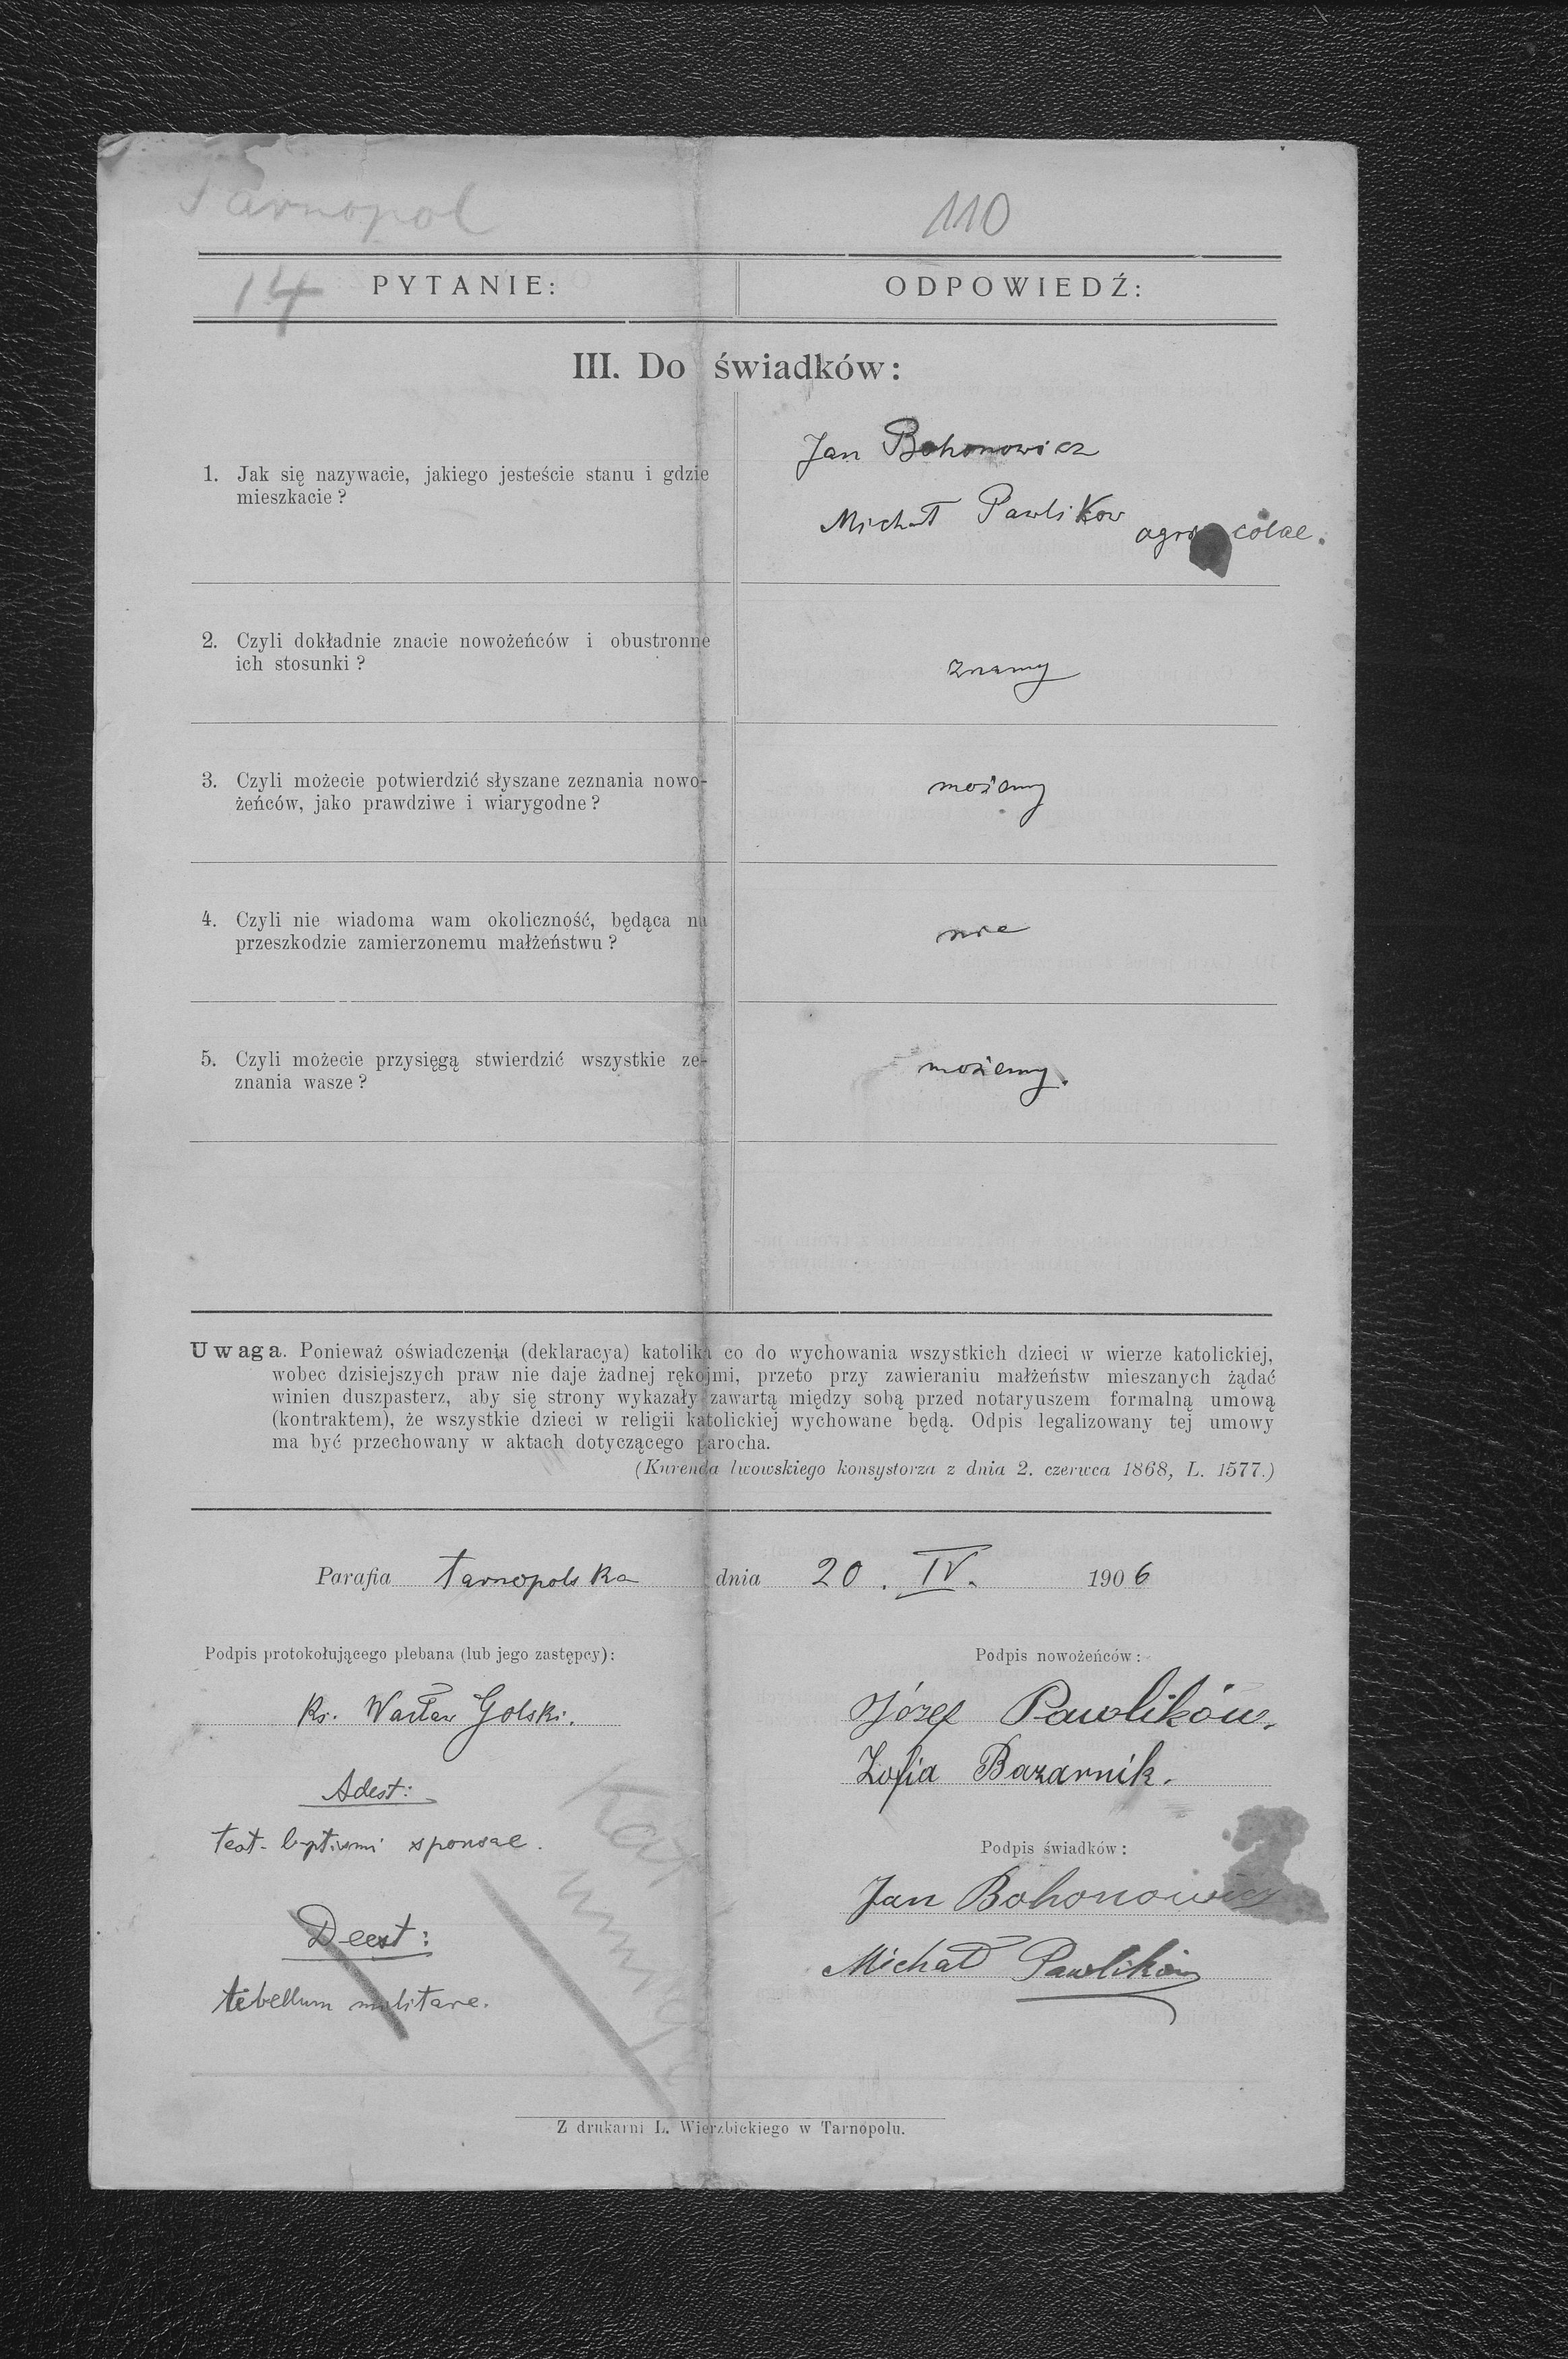 Tarnopol
110
14
PYTANIE:
ODPOWIEDŹ:
III. Do świadków:
1. Jak się nazywacie, jakiego jesteście stanu i gdzie
mieszkacie?
Jan Bohonowicz
Michał Pawlikow
agricolae.
2. Czyli dokładnie znacie nowożeńców i obustronne
ich stosunki?
znamy
3. Czyli możecie potwierdzić słyszane zeznania nowo-
żeńców, jako prawdziwe i wiarygodne?
możemy
4. Czyli nie wiadoma wam okoliczność, będąca na
przeszkodzie zamierzonemu małżeństwu?
nie
5. Czyli możecie przysięgą stwierdzić wszystkie ze-
znania wasze?
możemy.
Uwaga. Ponieważ oświadczenia (deklaracya) katolika co do wychowania wszystkich dzieci w wierze katolickiej,
wobec dzisiejszych praw nie daje żadnej rękojmi, przeto przy zawieraniu małżeństw mieszanych żądać
winien duszpasterz, aby się strony wykazały zawartą między sobą przed notaryuszem formalną umową
(kontraktem), że wszystkie dzieci w religii katolickiej wychowane będą. Odpis legalizowany tej umowy
ma być przechowany w aktach dotyczącego parocha.
(Kurenda lwowskiego konsystorza z dnia 2. czerwca 1868, L. 1577.)
Parafia Tarnopolska dnia 20. IV. 1906
Podpis protokołującego plebana (lub jego zastępcy):
Ks. Wacław Golski.
Podpis nowożeńców:
Józef Pawlików.
Zofia Bazarnik.
Adest:
test. baptismi sponsae.
Podpis świadków:
Jan Bohonowicz
Michał Pawlików
Deest:
libellum militare.
Z drukarni L. Wierzbickiego w Tarnopolu.